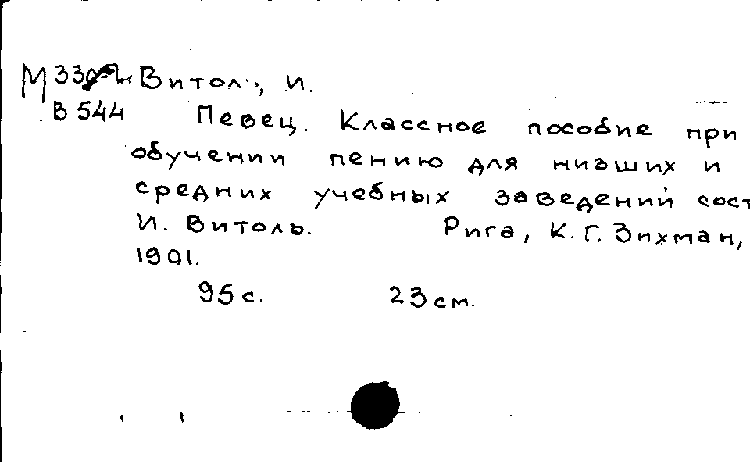 Витоль, И.
В 544 Певец. Классное пособие при
обучении пению для низших и
средних учебных заведений сост
И. Витоль. Рига, К. Г. Зихман,
1901.
95 с. 23 см.